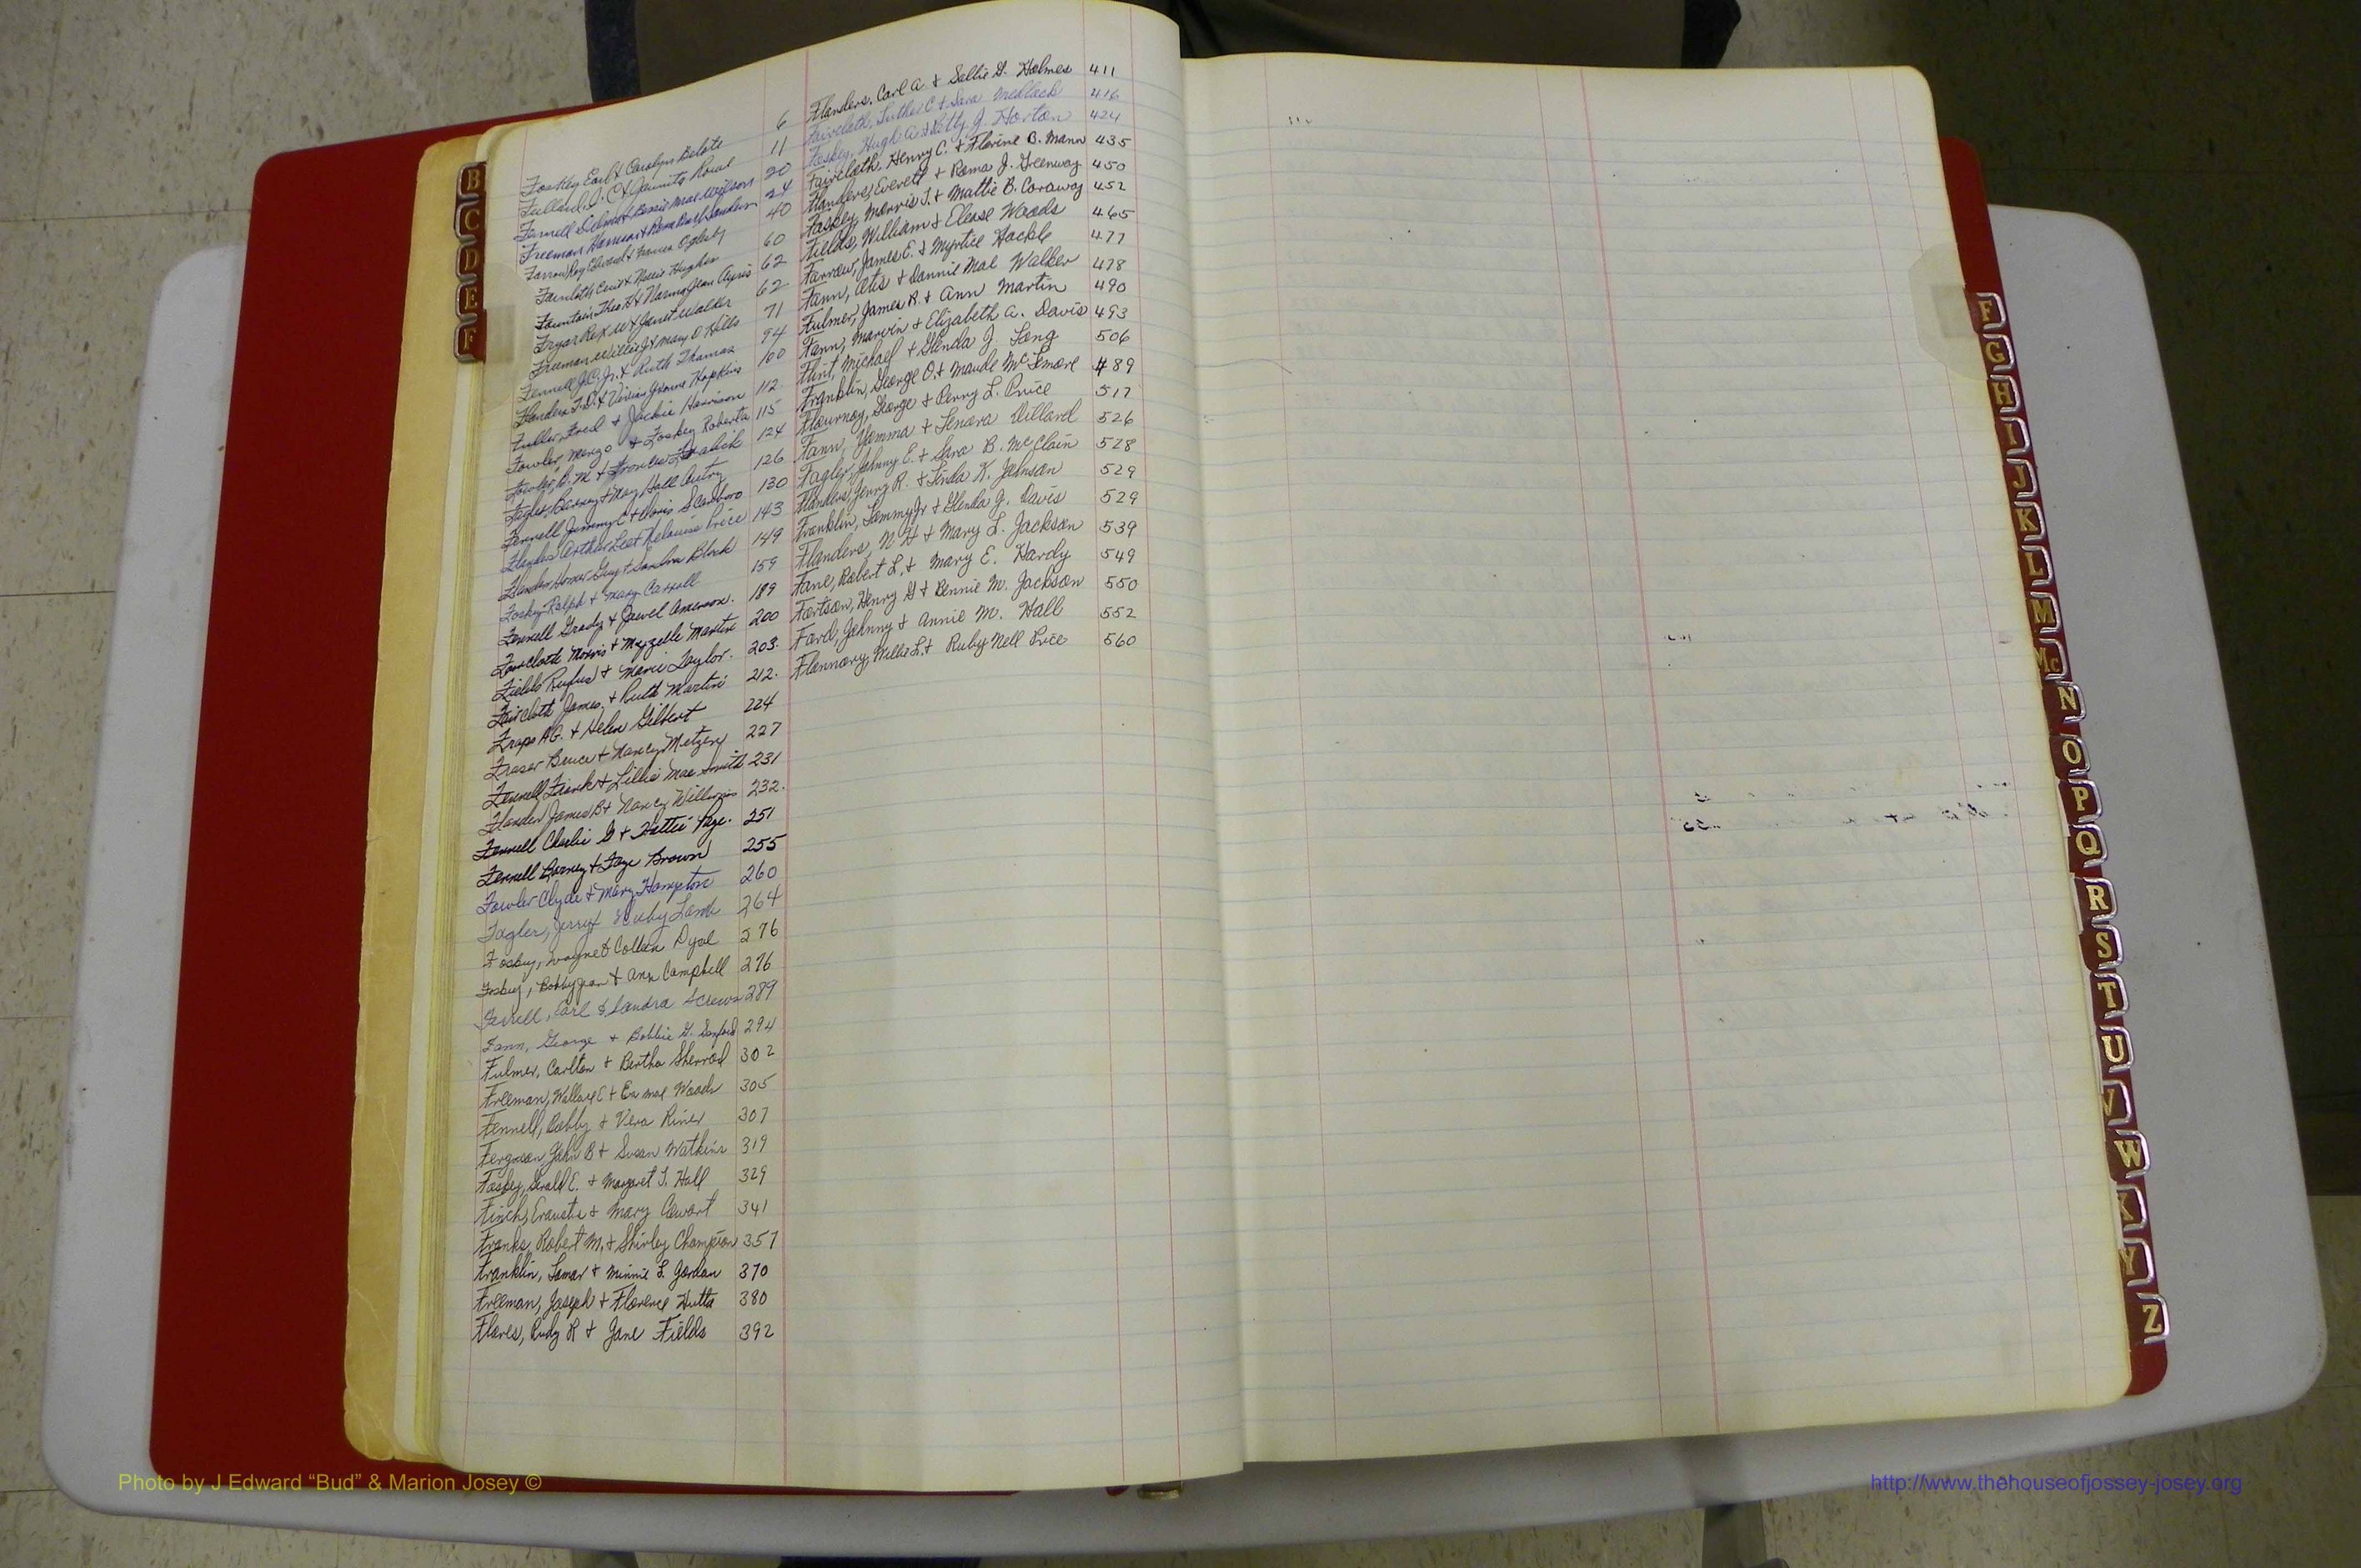 Foskey Earl & Carolyn Belote 6
Fullard J. C. & Juanita 11
Fennell Delmas & Bessie Mae Wilson 20
Freeman & 24
Farrow Roy Edward & Frances Oglesby 40
Faircloth Cecil & Nellie Hughes 60
Fountain Theo H & Norma Jean Ayres 62
Fryar Rex W & Janet Walker 62
Freeman Willie J & Mary O Hills 71
Fennell J.C. Jr. & Ruth Thomas 94
Flanders T.D. & Vivian Jeanne Hopkins 100
Fuller, Fred & Jackie Harrison 112
Fowler Menzo & Foskey Roberta 115
Fowler, B. M & Frances 124
Fagler, Barney & May Hall Autry 126
Fennell Jimmy C & Doris Scarboro 130
Arthur Lee & Price 143
Flanders Homer Guy & Sandra Block 149
Foskey Ralph & Mary Carroll 159
Fennell Grady & Jewel Amerson. 189
Faircloth Morris & Myzelle Martin 200
Fields Rufus & Marie Taylor. 203.
Faircloth James & Ruth Martin 212.
Fraps A.G. & Helen Gilbert 224
Fraser Bruce & Nancy Metzger 227
Fennell Frank & Lillie Mae Smith 231
Flanders James B & Nancy Williams 232.
Fennell Charlie G & Hattie Page. 251
Fennell Barney & Faye Brown 255
Fowler Clyde & Mary Hampton 260
Fagler, Jerry & Ruby Lamb 264
Foskey, Wayne & Colleen Dyal 276
Foskey, Bobby Jean & Ann Campbell 276
Ferrell, Carl & Sandra Screws 289
Fann, George & Bobbie G. Sanford 294
Fulmer, Carlton & Bertha Sherrod 302
Freeman, Wallace C & Eva Mae Woods 305
Fennell, Bobby & Vera Riner 307
Ferguson, John B & Susan Watkins 319
Foskey, Gerald E. & Margaret T. Hall 329
Finch, & Mary 341
Franks, Robert M. & Shirley Champion 357
Franklin, Lamar & Minnie L. Jordan 370
Freeman, Joseph & Florence Hutto 380
Flores, Rudy R & Jane Fields 392
Flanders, Carl A. & Sallie D. Holmes 411
Faircloth, Luther C & Sara Medlock 416
Foskey, Hugh A. & Betty J. Horton 424
Faircloth, Henry C. & Florine B. Mann 435
Flanders, Everett & Roma J. Greenway 450
Foskey, Morris T. & Mattie B. Caraway 452
Fields, William & Elease Woods 465
Farrow, James E. & Myrtice Hackle 477
Fann, Otis & Dannie Mae Walker 478
Fulmer, James R. & Ann Martin 490
Fann, Marvin & Elizabeth A. Davis 493
Flint, Michael & Glenda J. Long 506
Franklin, George O. & Maude McLemore 489
Flournoy, George & Penny L. Price 517
Fann, & Lenora Dillard 526
Fagler, Johnny E. & Sara B. McClain 528
Flanders, Jerry R. & Linda K. Johnson 529
Franklin, Tommy Jr & Glenda J. Davis 529
Flanders, N H & Mary L. Jackson 539
Fane, Robert L. & Mary E. Hardy 549
Fortson, Henry G & Bennie M. Jackson 550
Ford, Johnny & Annie M. Hall 552
Flannory, Willie L. & Ruby Nell Price 560
B
C
D
E
F
F
G
H
I
J
K
L
M
Mc
N
O
P
Q
R
S
T
U
V
W
X
Y
Z
Photo by J Edward “Bud” & Marion Josey ©
http://www.thehouseofjossey-josey.org